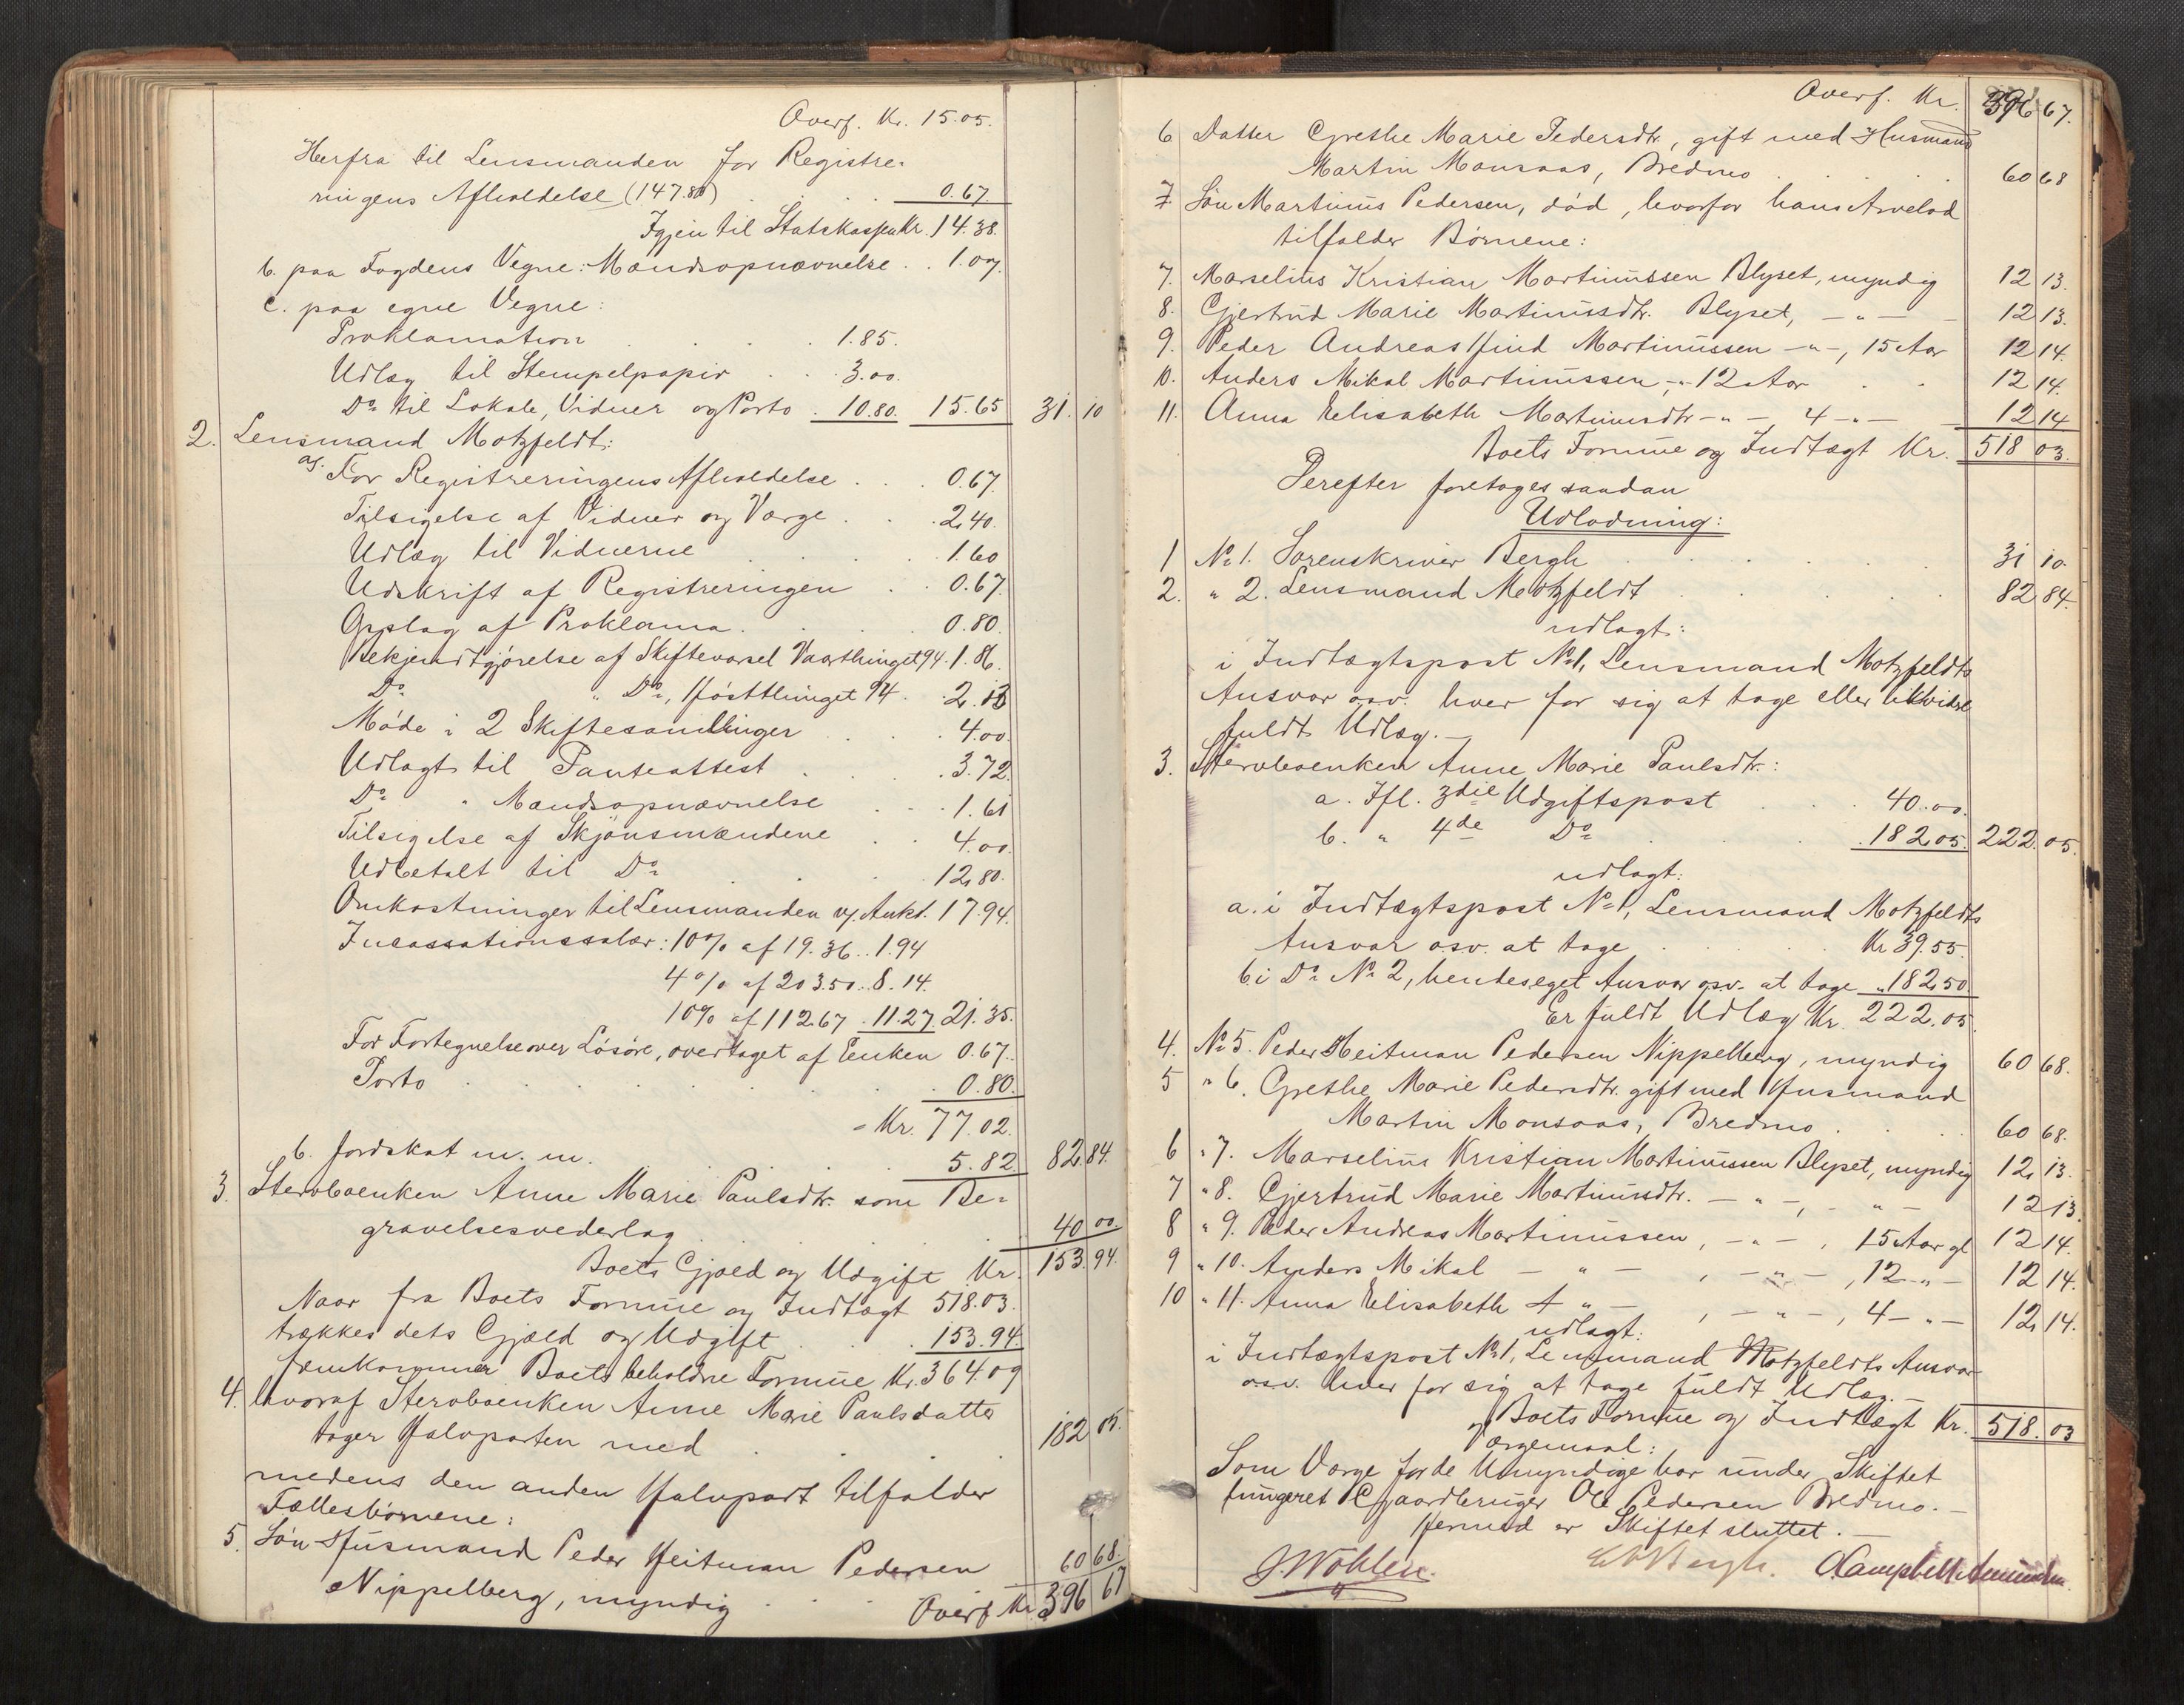 Overf. Kr. 15.05.
Herfra til Lensmanden for Registre-
ringens Afholdelse (147.80) . . . 0.67.
Igjen til Statskassen Kr. 14.38.
b. paa Fogdens Vegne: Mandsopnævnelse . . 1.07.
c. paa egne Vegne:
Proklamation . . . . 1.85.
Udlæg til Stempelpapir . . 3.00.
Do til Lokale, Vidner og Porto . 10.80. 15.65 31. 10
2. Lensmand Motzfeldt:
a). For Registreringens Afholdelse . . . 0.67.
Tilsigelse af Vidner og Værge . . . 2.40.
Udlæg til Vidnerne . . . 1.60
Udskrift af Registreringen . . 0.67.
Opslag af Proklama . . . 0.80.
Bekjendtgjørelse af Skiftevarsel Vaarthinget 94. 1.86.
Do " Do, Høstthinget 94 . . 2.13
Møde i 2 Skiftesamlinger . . . 4.00.
Udlagt til Panteattest . . . 3.72.
Do " Mandsopnævnelse . . . 1.61
Tilsigelse af Skjønsmændene . . 4.00.
Udbetalt til Do . . . 12.80.
Omkostninger til Lensmanden v. Aukt. 17.94.
Incassationssalær: 10% af 19.36 . . 1.94
4% af 203.50 . . 8.14.
10% af 112.67 . 11.27. 21.35.
For Fortegnelse over Løsøre, overtaget af Enken 0.67.
Porto . . . . . . 0.80.
= Kr. 77.02.
b. Jordskat m. m. . . . 5.82. 82.84.
3. Stervboenken Anne Marie Paulsdtr. som Be-
gravelsesvederlag . . . . 40 00.
Boets Gjæld og Udgift Kr. 153.94.
Naar fra Boets Formue og Indtægt 518.03.
trækkes dets Gjæld og Udgift . . 153.94.
fremkommer Boets beholdne Formue Kr. 364.09
4. hvoraf Stervboenken Anne Marie Paulsdatter
tager Halvparten med . . . 182 05.
medens den anden Halvpart tilfalder
Fællesbørnene:
5. Søn Husmand Peder Heitman Pedersen
Nippelberg, myndig . . . 60 68.
Overf. Kr. 396 67
Overf. Kr. 396 67.
6 Datter Grethe Marie Pedersdtr., gift med Husmand
Martin Monsaas, Bredmo . . . . 60 68
7 Søn Martinus Pedersen, død, hvorfor hans Arvelod
tilfalder Børnene:
7. Marselius Kristian Martinussen Blyset, myndig 12 13.
8. Gjertrud Marie Martinusdtr. Blyset, — " — 12 13.
9. Peder Andreas Hind Martinussen — " —, 15 Aar 12 14.
10. Anders Mikal Martinussen, — " — 12 Aar . . 12 14.
11. Anna Elisabeth Martinusdtr — " — 4 — " — 12 14
Boets Formue og Indtægt Kr. 518 03.
Derefter foretages saadan
Udlodning:
1 No 1. Sorenskriver Bergh . . . . 31 10.
2. " 2. Lensmand Motzfeldt . . . . 82 84.
udlagt:
i Indtægtspost No 1, Lensmand Motzfeldts
Ansvar osv. hver for sig at tage eller likvidere
fuldt Udlæg. —
3. Stervboenken Anne Marie Paulsdtr.:
a. Ifl. 3die Udgiftspost . . . 40.00.
b. " 4de Do . . . 182.05. 222.05.
udlagt:
a. i Indtægtspost No 1, Lensmand Motzfeldts
Ansvar osv. at tage . . . Kr 39.55.
b. i Do No 2, hendes eget Ansvar osv. at tage " 182.50
Er fuldt Udlæg Kr. 222.05.
4. No 5. Peder Heitman Pedersen Nippelberg, myndig 60 68.
5 " 6. Grethe Marie Pedersdtr. gift med Husmand
Martin Monsaas, Bredmo . . . 60 68.
6 " 7. Marselius Kristian Martinussen Blyset, myndig 12 13.
7 " 8. Gjertrud Marie Martinusdtr. — " —, — " — 12 13.
8 " 9. Peder Andreas Martinussen, — " —, 15 Aar gl 12 14.
9 " 10. Anders Mikal — " — , — " —, 12 — " — 12 14.
10 " 11. Anna Elisabeth — " — , — " —, 4 — " — 12 14.
udlagt:
i Indtægtspost No 1, Lensmand Motzfeldts Ansvar
osv. hver for sig at tage fuldt Udlæg. —
Boets Formue og Indtægt Kr. 518.03
Værgemaal:
Som Værge for de Umyndige har under Skiftet
fungeret Gaardbruger Ole Pedersen Bredmo. —
Hermed er Skiftet sluttet. —
J. Wohlen. Bergh. Campbell Amundsen.